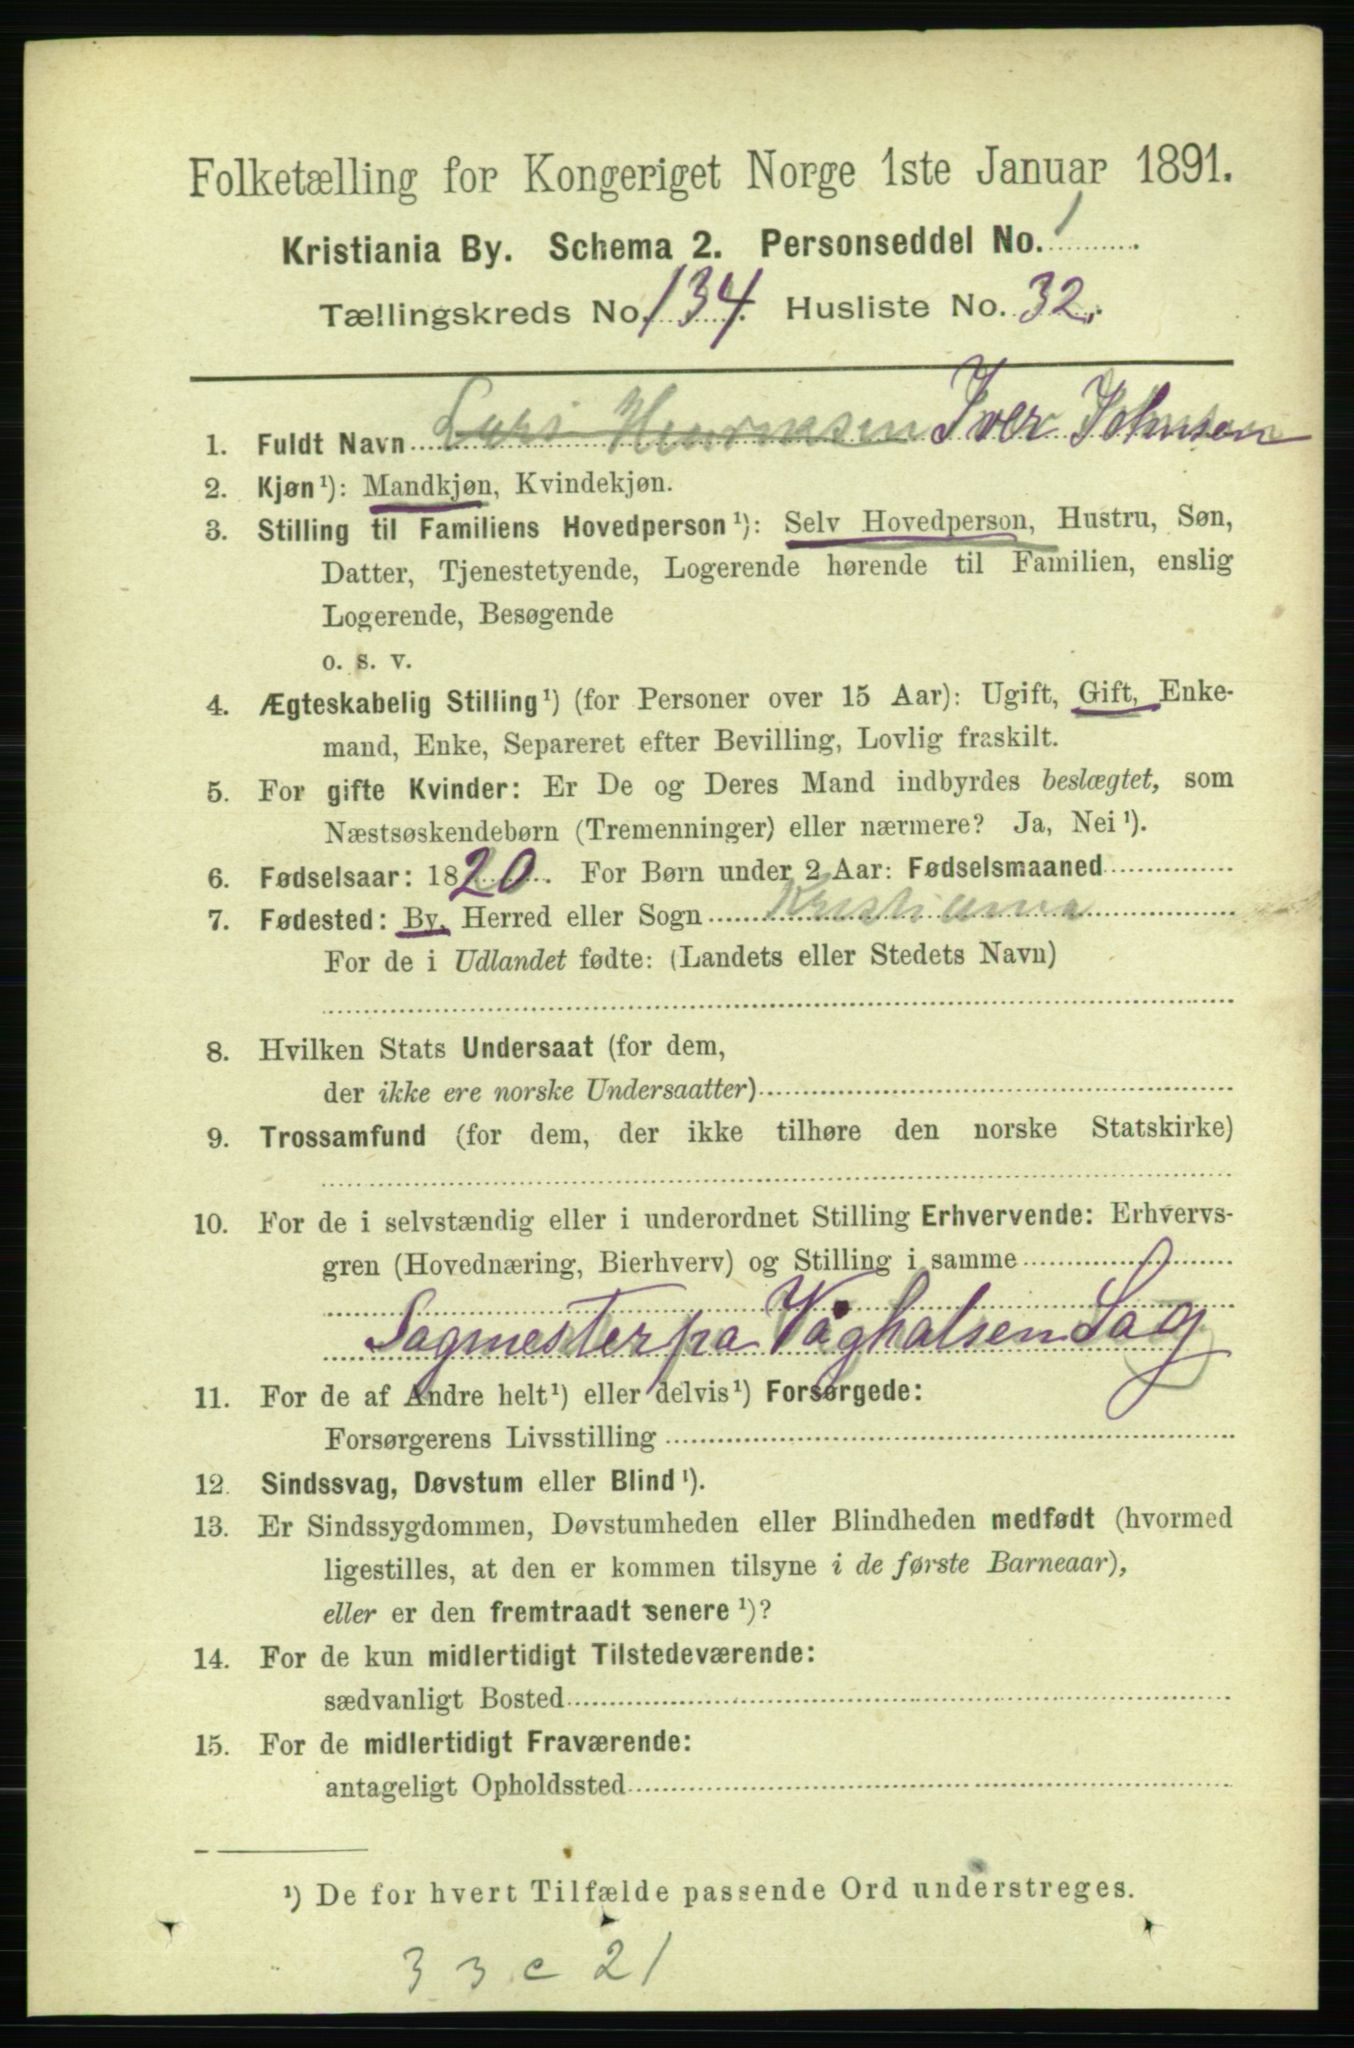 Folketælling for Kongeriget Norge 1ste Januar 1891.
Kristiania By. Schema 2. Personseddel No. 1
Tællingskreds No. 134. Husliste No. 32.
1. Fuldt Navn Iver Johnsen
2. Kjøn¹): Mandkjøn, Kvindekjøn.
3. Stilling til Familiens Hovedperson¹): Selv Hovedperson, Hustru, Søn,
Datter, Tjenestetyende, Logerende hørende til Familien, enslig
Logerende, Besøgende
o. s. v.
4. Ægteskabelig Stilling¹) (for Personer over 15 Aar): Ugift, Gift, Enke-
mand, Enke, Separeret efter Bevilling, Lovlig fraskilt.
5. For gifte Kvinder: Er De og Deres Mand indbyrdes beslægtet, som
Næstsøskendebørn (Tremenninger) eller nærmere? Ja, Nei¹).
6. Fødselsaar: 1820. For Børn under 2 Aar: Fødselsmaaned
7. Fødested: By, Herred eller Sogn Kristiania
For de i Udlandet fødte: (Landets eller Stedets Navn)
8. Hvilken Stats Undersaat (for dem,
der ikke ere norske Undersaatter)
9. Trossamfund (for dem, der ikke tilhøre den norske Statskirke)
10. For de i selvstændig eller i underordnet Stilling Erhvervende: Erhvervs-
gren (Hovednæring, Bierhverv) og Stilling i samme
Sagmester pa Våghalsen Sag
11. For de af Andre helt¹) eller delvis¹) Forsørgede:
Forsørgerens Livsstilling
12. Sindssvag, Døvstum eller Blind¹).
13. Er Sindssygdommen, Døvstumheden eller Blindheden medfødt (hvormed
ligestilles, at den er kommen tilsyne i de første Barneaar),
eller er den fremtraadt senere¹)?
14. For de kun midlertidigt Tilstedeværende:
sædvanligt Bosted
15. For de midlertidigt Fraværende:
antageligt Opholdssted
¹) De for hvert Tilfælde passende Ord understreges.
3 3 c 21